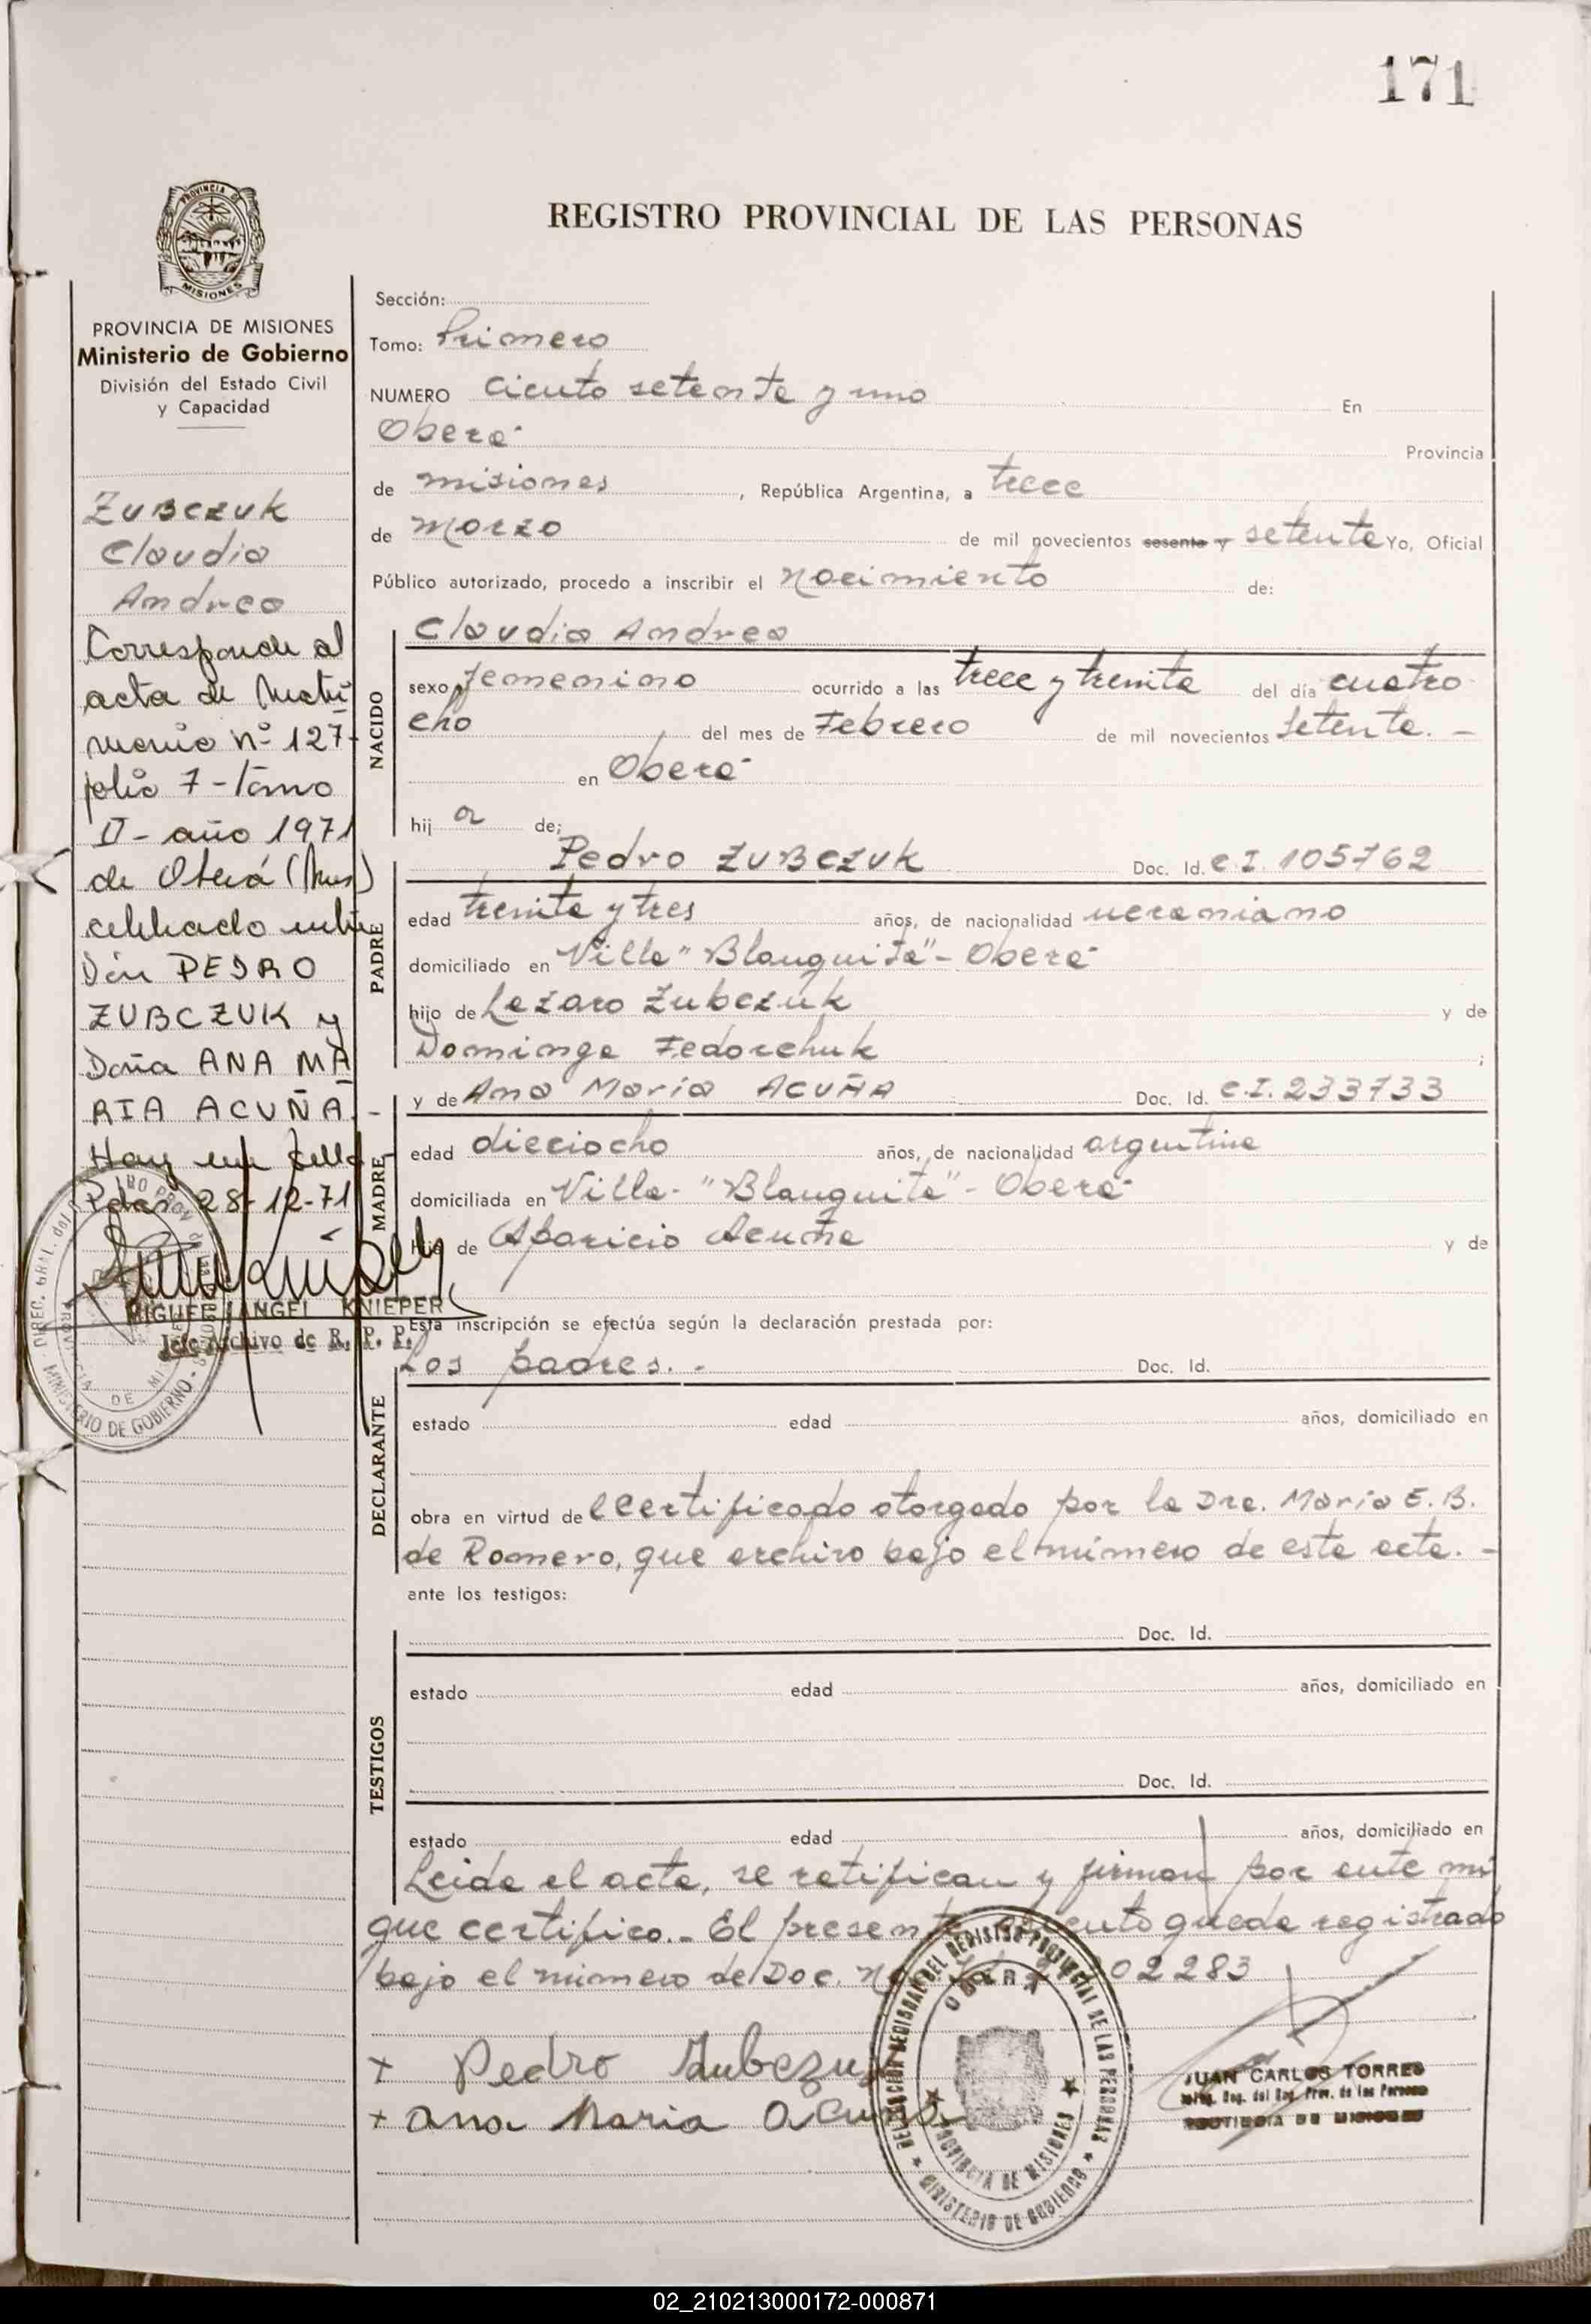 171
PROVINCIA DE
MISIONES
REGISTRO PROVINCIAL DE LAS PERSONAS
PROVINCIA DE MISIONES
Ministerio de Gobierno
División del Estado Civil
y Capacidad
ZUBCZUK
Claudia
Andrea
Corresponde al
acta de Matri
monio nº 127-
folio 7 - Tomo
II - año 1971
de Oberá (Mnes)
celebrado entre
Don PEDRO
ZUBCZUK y
Doña ANA MA
RIA ACUÑA. -
Hay un sello
Pdas 28-12-71
MIGUEL ANGEL KNIEPER
Jefe Archivo de R. P. P.
MINISTERIO DE GOBIERNO
Sección:
Tomo: Primero
NUMERO Ciento setenta y uno En
Oberá Provincia
de misiones, República Argentina, a trece
de marzo de mil novecientos sesenta y setenta Yo, Oficial
Público autorizado, procedo a inscribir el nacimiento de:
NACIDO
Claudia Andrea
sexo femenino ocurrido a las trece y treinta del día cuatro
del mes de Febrero de mil novecientos setenta. -
en Oberá
hij a de:
PADRE
Pedro ZUBCZUK Doc. Id. C.I. 105762
edad treinta y tres años, de nacionalidad ucraniano
domiciliado en Villa "Blanquita" - Oberá
hijo de Lazaro Zubczuk y de
Dominga Fedorchuk ;
MADRE
y de Ana Maria ACUÑA Doc. Id. C.I. 233733
edad dieciocho años, de nacionalidad argentina
domiciliada en Villa - "Blanquita" - Oberá
hija de Aparicio Acuña y de
Esta inscripción se efectúa según la declaración prestada por:
DECLARANTE
Los padres. - Doc. Id.
estado edad años, domiciliado en
obra en virtud de certificado otorgado por la Dra. Maria E. B.
de Romero, que archivo bajo el número de esta acta. -
ante los testigos:
TESTIGOS
Doc. Id.
estado edad años, domiciliado en
Doc. Id.
estado edad años, domiciliado en
Leida el acta, se ratifican y firman por ante mi
que certifico. - El presente queda registrado
bajo el número de Doc. 02283
+ Pedro Zubczuk
+ Ana Maria Acuña
DELEGACION REGIONAL DEL REGISTRO PROVINCIAL DE LAS PERSONAS
OBERA
PROVINCIA DE MISIONES
MINISTERIO DE GOBIERNO
JUAN CARLOS TORRES
PROVINCIA DE MISIONES
02_210213000172-000871